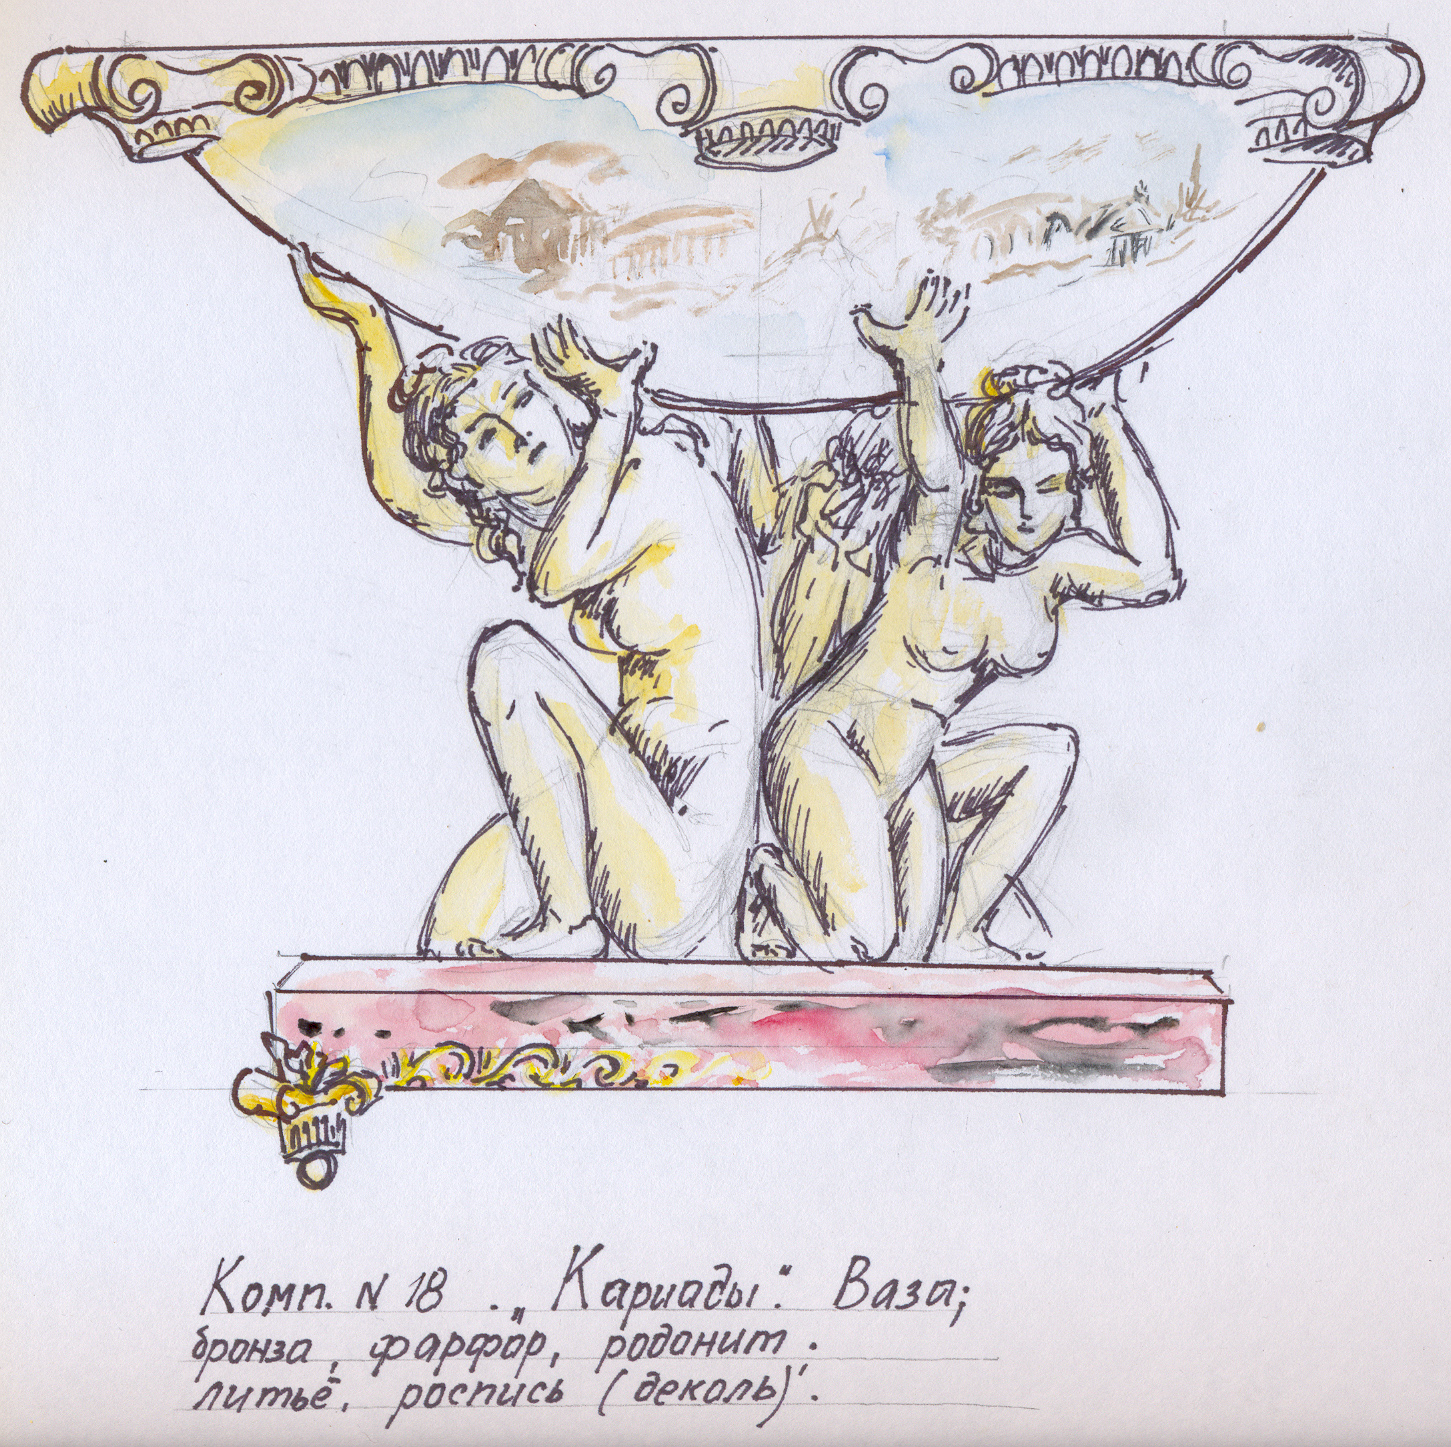 Комп. N 18 . „Кариады". Ваза;
бронза, фарфор, родонит.
литьё, роспись (деколь).